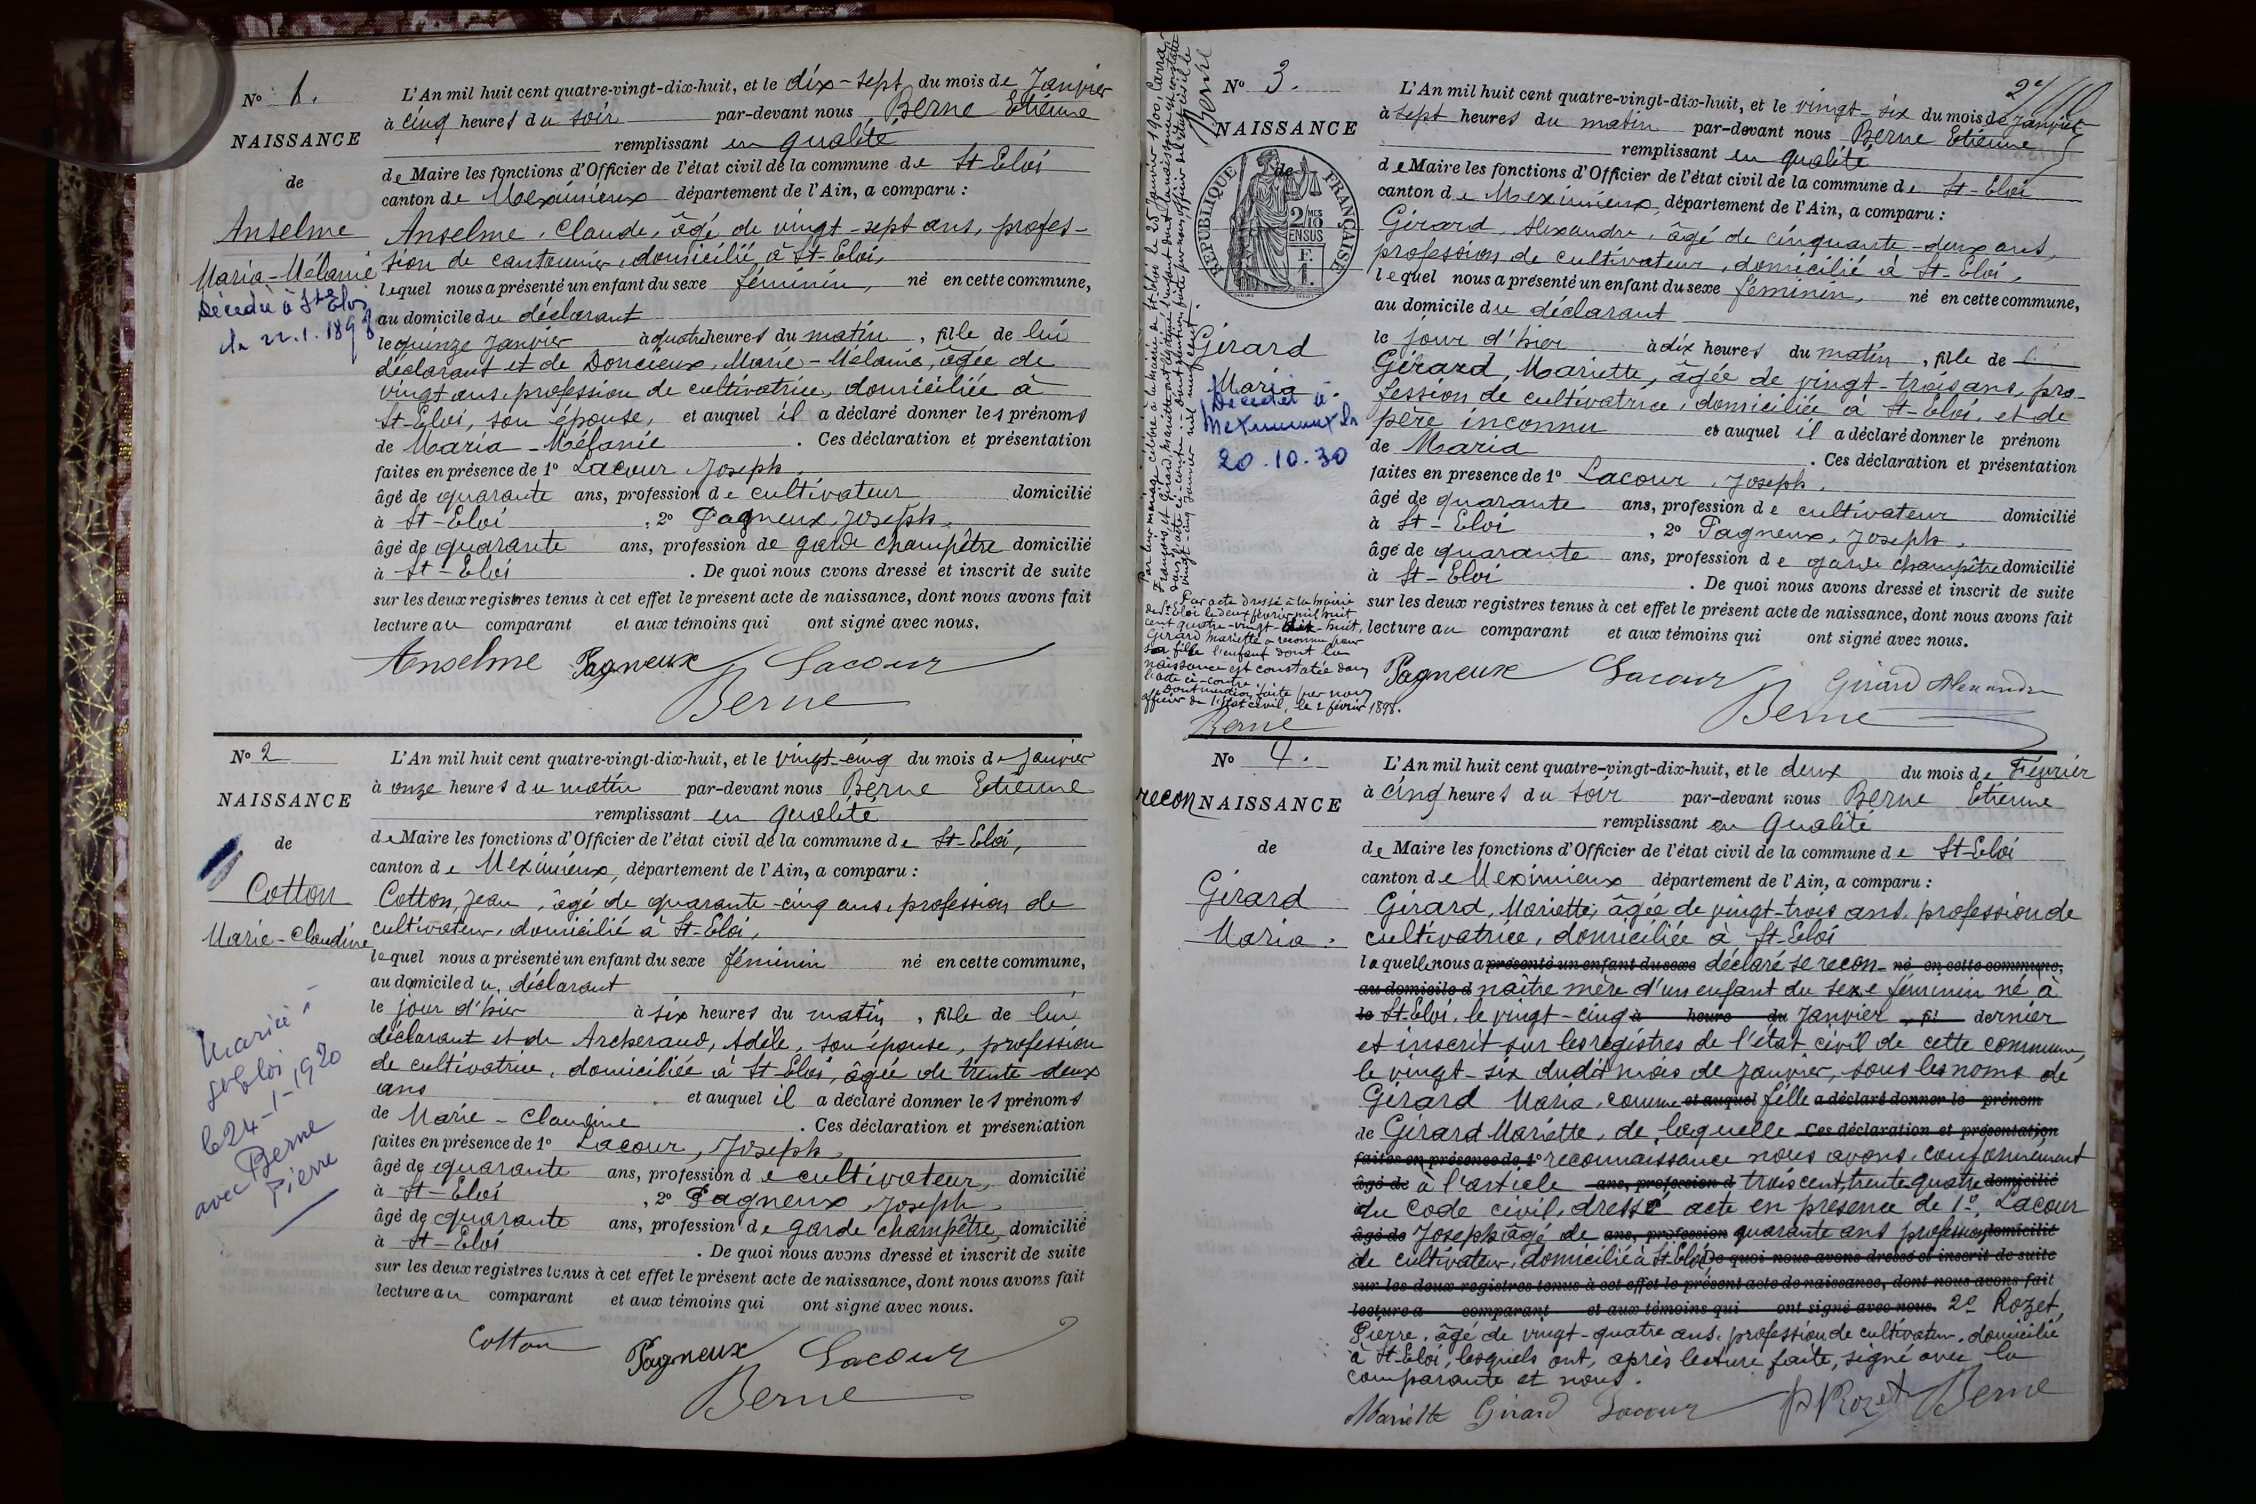 No 1.
NAISSANCE
de
Anselme
Maria-Mélanie
Décédée à St Eloi
le 22.1.1898
L'An mil huit cent quatre-vingt-dix-huit, et le dix-sept du mois de Janvier
à cinq heures du soir par-devant nous Berne Etienne
remplissant en qualité
de Maire les fonctions d'Officier de l'état civil de la commune de St Eloi
canton de Meximieux département de l'Ain, a comparu :
Anselme, Claude, âgé de vingt-sept ans, profes-
sion de cantonnier, domicilié à St-Eloi,
lequel nous a présenté un enfant du sexe féminin, né en cette commune,
au domicile du déclarant
le quinze Janvier à quatre heures du matin, fille de lui
déclarant et de Doncieux, Marie-Mélanie, âgée de
vingt ans, profession de cultivatrice, domiciliée à
St-Eloi, son épouse, et auquel il a déclaré donner les prénoms
de Maria-Mélanie. Ces déclaration et présentation
faites en présence de 1o Lacour Joseph,
âgé de quarante ans, profession de cultivateur domicilié
à St-Eloi, 2o Pagneux, Joseph,
âgé de quarante ans, profession de garde champêtre domicilié
à St-Eloi. De quoi nous avons dressé et inscrit de suite
sur les deux registres tenus à cet effet le présent acte de naissance, dont nous avons fait
lecture au comparant et aux témoins qui ont signé avec nous.
Anselme Pagneux Lacour
Berne
No 2
NAISSANCE
de
Cotton
Marie-Claudine
Mariée à
St Eloi
le 24-1-1920
avec Berne
Pierre
L'An mil huit cent quatre-vingt-dix-huit, et le vingt-cinq du mois de Janvier
à onze heures du matin par-devant nous Berne Etienne
remplissant en qualité
de Maire les fonctions d'Officier de l'état civil de la commune de St-Eloi,
canton de Meximieux, département de l'Ain, a comparu :
Cotton, Jean, âgé de quarante-cinq ans, profession de
cultivateur, domicilié à St-Eloi,
lequel nous a présenté un enfant du sexe féminin né en cette commune,
au domicile du déclarant
le jour d'hier à six heures du matin, fille de lui
déclarant et de Archeraud, Adèle, son épouse, profession
de cultivatrice, domiciliée à St Eloi, âgée de trente-deux
ans et auquel il a déclaré donner les prénoms
de Marie-Claudine. Ces déclaration et présentation
faites en présence de 1o Lacour, Joseph,
âgé de quarante ans, profession de cultivateur, domicilié
à St-Eloi, 2o Pagneux Joseph,
âgé de quarante ans, profession de garde champêtre, domicilié
à St-Eloi. De quoi nous avons dressé et inscrit de suite
sur les deux registres tenus à cet effet le présent acte de naissance, dont nous avons fait
lecture au comparant et aux témoins qui ont signé avec nous.
Cotton Pagneux Lacour
Berne
No 3.
NAISSANCE
de
REPUBLIQUE FRANÇAISE
2/10 MES
EN SUS
F.
1.
Girard
Maria
Décédée à
Meximieux le
20.10.30
Par acte dressé à la mairie
de St Eloi le deux février mil huit
cent quatre-vingt-dix huit,
Girard Mariette a reconnu pour
sa fille l'enfant dont la
naissance est constatée dans
l'acte ci-contre.
Dont mention faite par nous
officier de l'état civil, le 2 février 1898.
Berne
L'An mil huit cent quatre-vingt-dix-huit, et le vingt-six du mois de Janvier
à sept heures du matin par-devant nous Berne Etienne
remplissant en qualité
de Maire les fonctions d'Officier de l'état civil de la commune de St-Eloi
canton de Meximieux, département de l'Ain, a comparu :
Girard, Alexandre, âgé de cinquante-deux ans,
profession de cultivateur, domicilié à St-Eloi,
lequel nous a présenté un enfant du sexe féminin, né en cette commune,
au domicile du déclarant
le jour d'hier à dix heures du matin, fille de
Girard, Mariette, âgée de vingt-trois ans, pro-
fession de cultivatrice, domiciliée à St-Eloi, et de
père inconnu et auquel il a déclaré donner le prénom
de Maria. Ces déclaration et présentation
faites en présence de 1o Lacour, Joseph,
âgé de quarante ans, profession de cultivateur domicilié
à St-Eloi, 2o Pagneux, Joseph,
âgé de quarante ans, profession de garde champêtre domicilié
à St-Eloi. De quoi nous avons dressé et inscrit de suite
sur les deux registres tenus à cet effet le présent acte de naissance, dont nous avons fait
lecture au comparant et aux témoins qui ont signé avec nous.
Pagneux Lacour Girard Alexandre
Berne
No 4.
reconNAISSANCE
de
Girard
Maria.
L'An mil huit cent quatre-vingt-dix-huit, et le deux du mois de Février
à cinq heures du soir par-devant nous Berne Etienne
remplissant en qualité
de Maire les fonctions d'Officier de l'état civil de la commune de St-Eloi
canton de Meximieux département de l'Ain, a comparu :
Girard, Mariette, âgée de vingt-trois ans, profession de
cultivatrice, domiciliée à St-Eloi
laquelle nous a présenté un enfant du sexe déclaré se recon- né en cette commune,
au domicile d naître mère d'un enfant du sexe féminin né à
le St-Eloi, le vingt-cinq à heure du Janvier, fi dernier
et inscrit sur les registres de l'état civil de cette commune,
le vingt-six dudit mois de Janvier, sous les noms de
Girard Maria, comme et auquel fille a déclaré donner le prénom
de Girard Mariette, de laquelle Ces déclaration et présentation
faites en présence de 1o reconnaissance nous avons, conformément
âgé de à l'article ans, profession d trois cent trente-quatre domicilié
du code civil, dressé acte en présence de 1o, Lacour
âgé de Joseph âgé de ans, profession quarante ans profession domicilié
de cultivateur, domicilié à St-Eloi, De quoi nous avons dressé et inscrit de suite
sur les deux registres tenus à cet effet le présent acte de naissance, dont nous avons fait
lecture a comparant et aux témoins qui ont signé avec nous. 2o Rozet,
Pierre, âgé de vingt-quatre ans, profession de cultivateur, domicilié
à St-Eloi, lesquels ont, après lecture faite, signé avec la
comparante et nous.
Mariette Girard Lacour P Rozet Berne